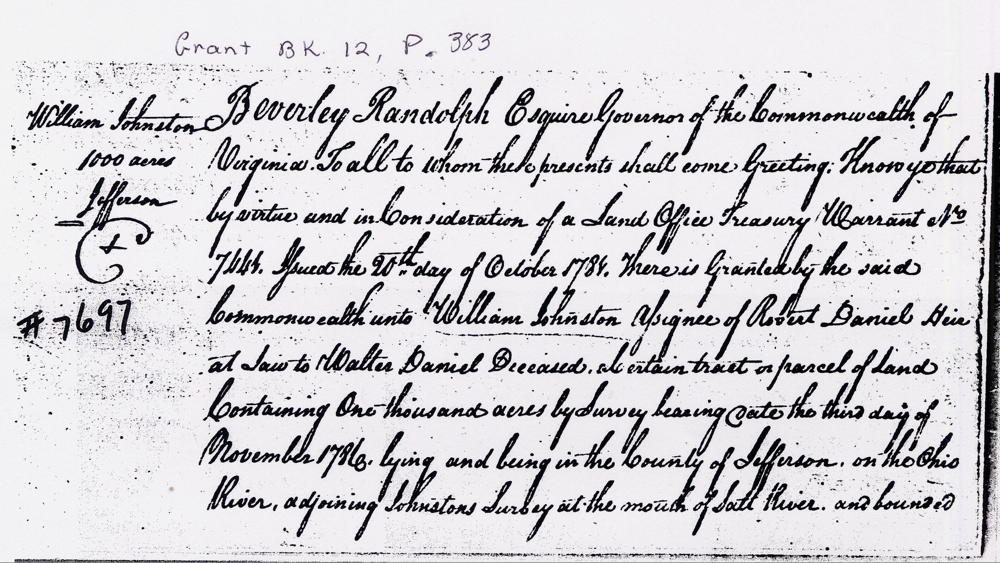 Grant BK. 12, P. 383
William Johnston
1000 acres
Jefferson
#7697
Beverley Randolph Esquire Governor of the Commonwealth of
Virginia. To all to whom these presents shall come Greeting: Know ye that
by virtue and in Consideration of a Land Office Treasury Warrant No
7444. Issued the 20th day of October 1781. There is Granted by the said
Commonwealth unto William Johnston Assignee of Robert Daniel Heir
at Law to Walter Daniel Deceased. a Certain tract or parcel of Land
Containing One thousand acres by Survey bearing date the third day of
November 1786. lying and being in the County of Jefferson. on the Ohio
River, adjoining Johnstons Survey at the mouth of Salt River. and bounded